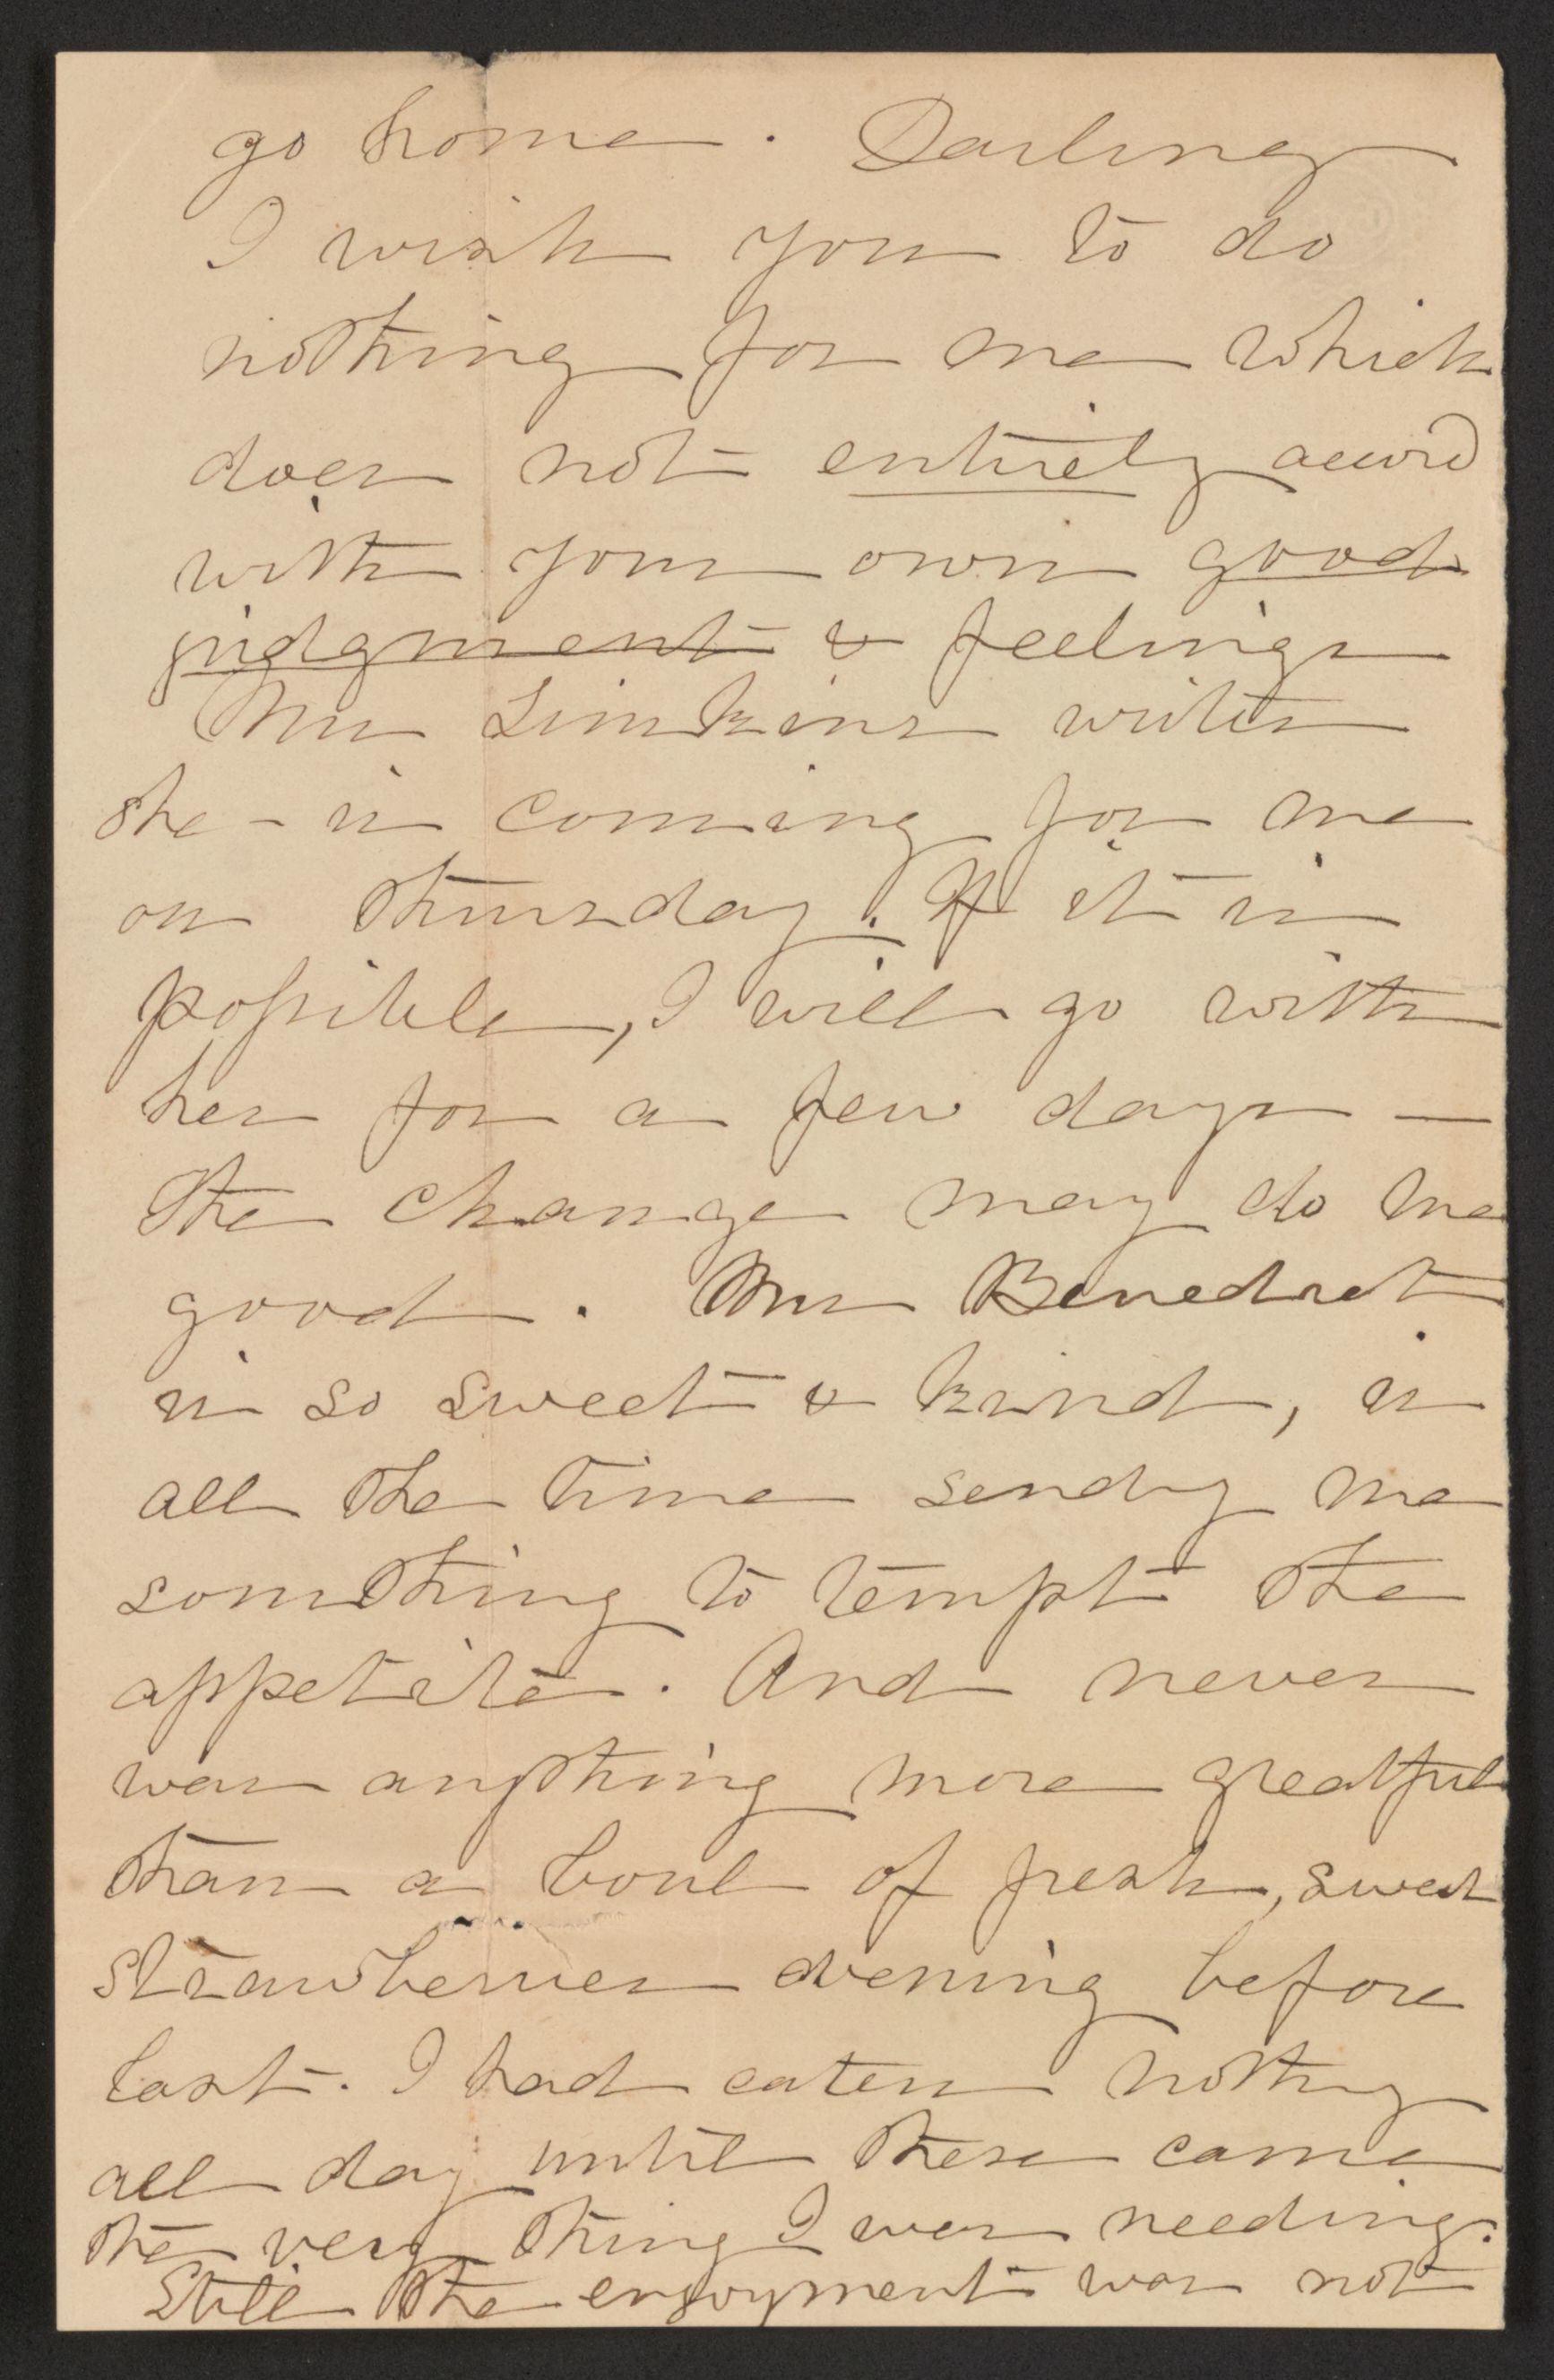 go home. Darling
I wish you to do
nothing for me which
does not entirely accord
with your own good
judgment & feelings
Mrs Simkins writes
she - is coming for me
on Thursday. If it is
possible, I will go with
her for a few days —
The change may do me
good. Mrs Benedict
is so sweet & kind, is
all the time sendg me
something to tempt the
appetite. And never
was anything more greatful
than a boul of fresh, sweet
strawberries evening before
last. I had eaten nothg
all day until these came
the very thing I was needing.
Still the enjoyment was not